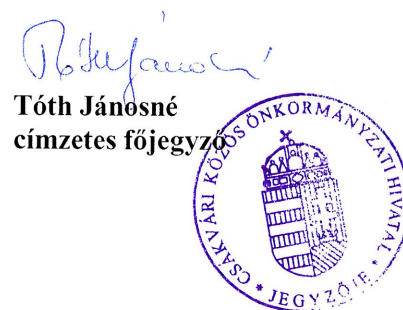 Tóth Jánosné
Tóth Jánosné
címzetes főjegyző
CSÁKVÁRI KÖZÖS ÖNKORMÁNYZATI HIVATAL * JEGYZŐJE *